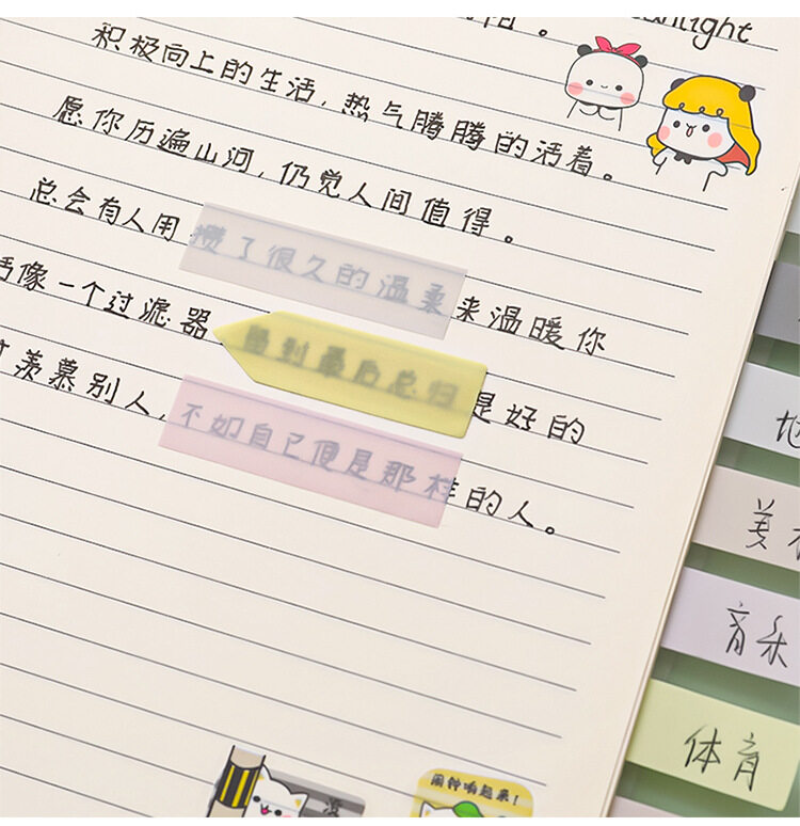 阳。
light
积极向上的生活，热气腾腾的活着。
愿你历遍山河，仍觉人间值得。
总会有人用攒了很久的温柔来温暖你
像一个过滤器留到最后总归是好的
羡慕别人，不如自己便是那样的人。
美
音乐
体育
闹钟响起来！